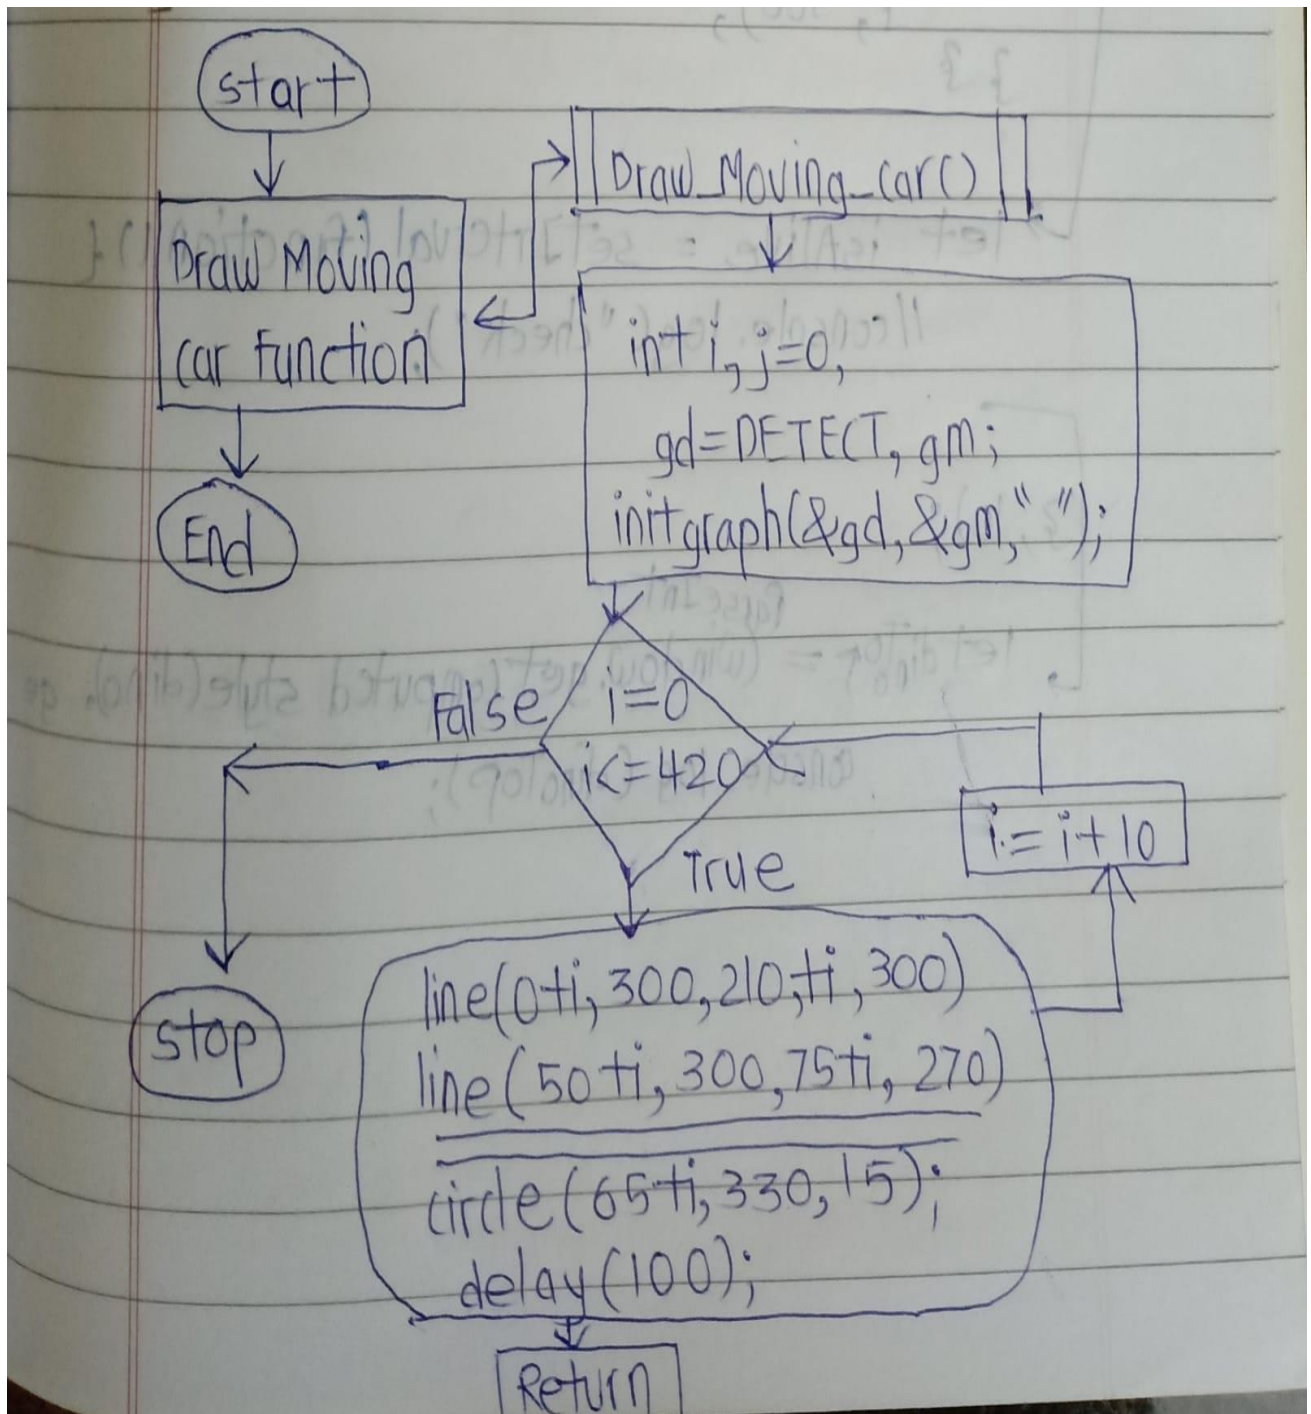 start
Draw Moving
car function
End
Draw_Moving_car()
int i, j=0,
gd=DETECT, gm;
initgraph(&gd, &gm, " ");
i=0
i<=420
False
True
i = i+10
stop
line(0+i, 300, 210,+i, 300)
line(50+i, 300, 75+i, 270)
circle(65+i, 330, 15);
delay(100);
Return